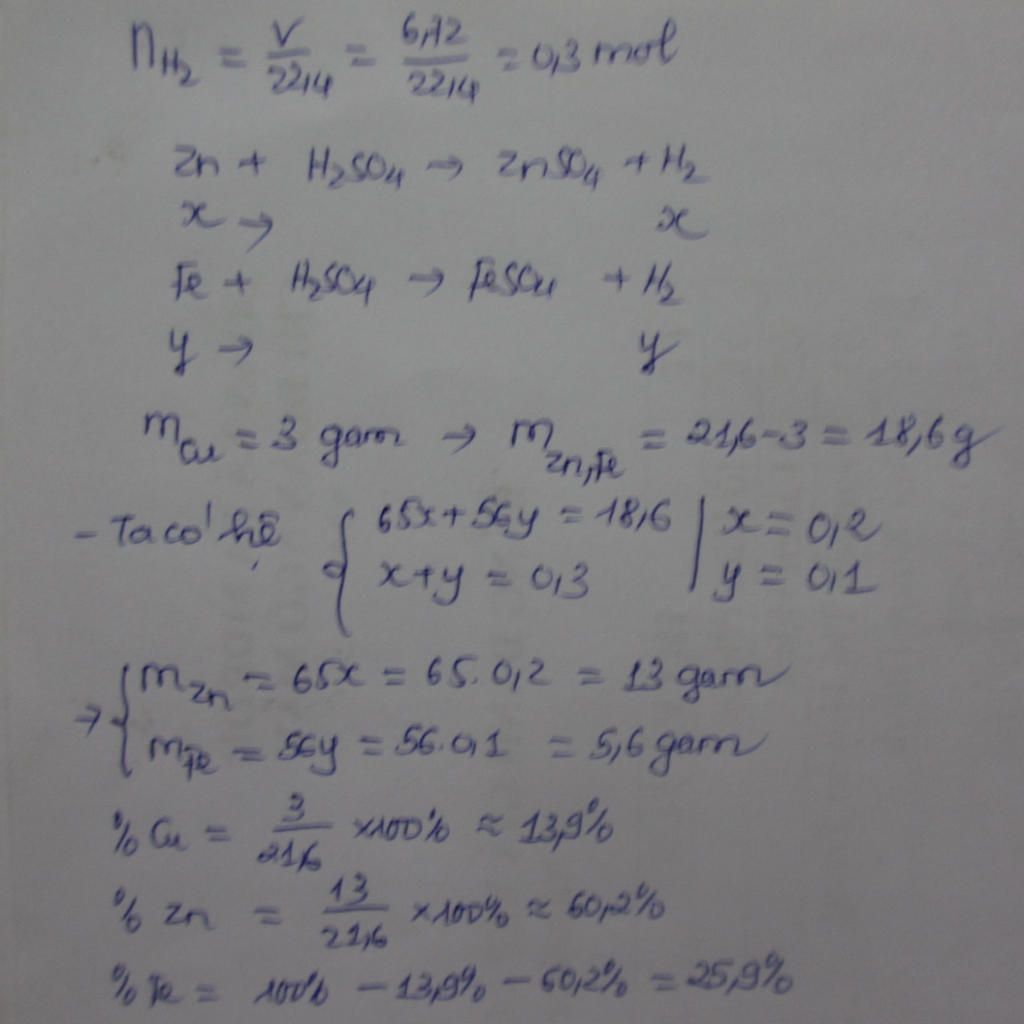 nH2 = V/22,4 = 6,72/22,4 = 0,3 mol
Zn + H2SO4 → ZnSO4 + H2
x → x
Fe + H2SO4 → FeSO4 + H2
y → y
mCu = 3 gam → mZn,Fe = 21,6 - 3 = 18,6g
- Ta có hệ { 65x + 56y = 18,6 | x = 0,2
x + y = 0,3 | y = 0,1
→ { mZn = 65x = 65.0,2 = 13 gam
mFe = 56y = 56.0,1 = 5,6 gam
% Cu = 3/21,6 ×100% ≈ 13,9%
% Zn = 13/21,6 ×100% ≈ 60,2%
% Fe = 100% - 13,9% - 60,2% = 25,9%